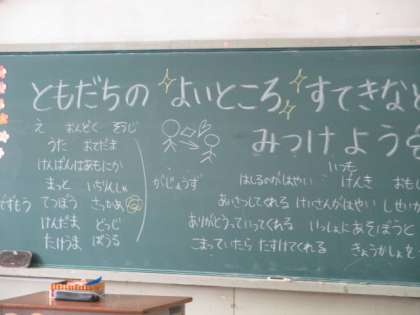 ともだちの よいところ すてきな
みつけよう
え おんどく そうじ
うた おてだま
けんばんはあもにか
まっと いちりんしゃ
てつぼう さっかあ
けんだま どっじ
たけうま ぼうる
がじょうず
いつも
はしるのがはやい げんき
あいさつしてくれる けいさんがはやい
ありがとうっていってくれる いっしょにあそぼうと
こまっていたら たすけてくれる きょうかしょを